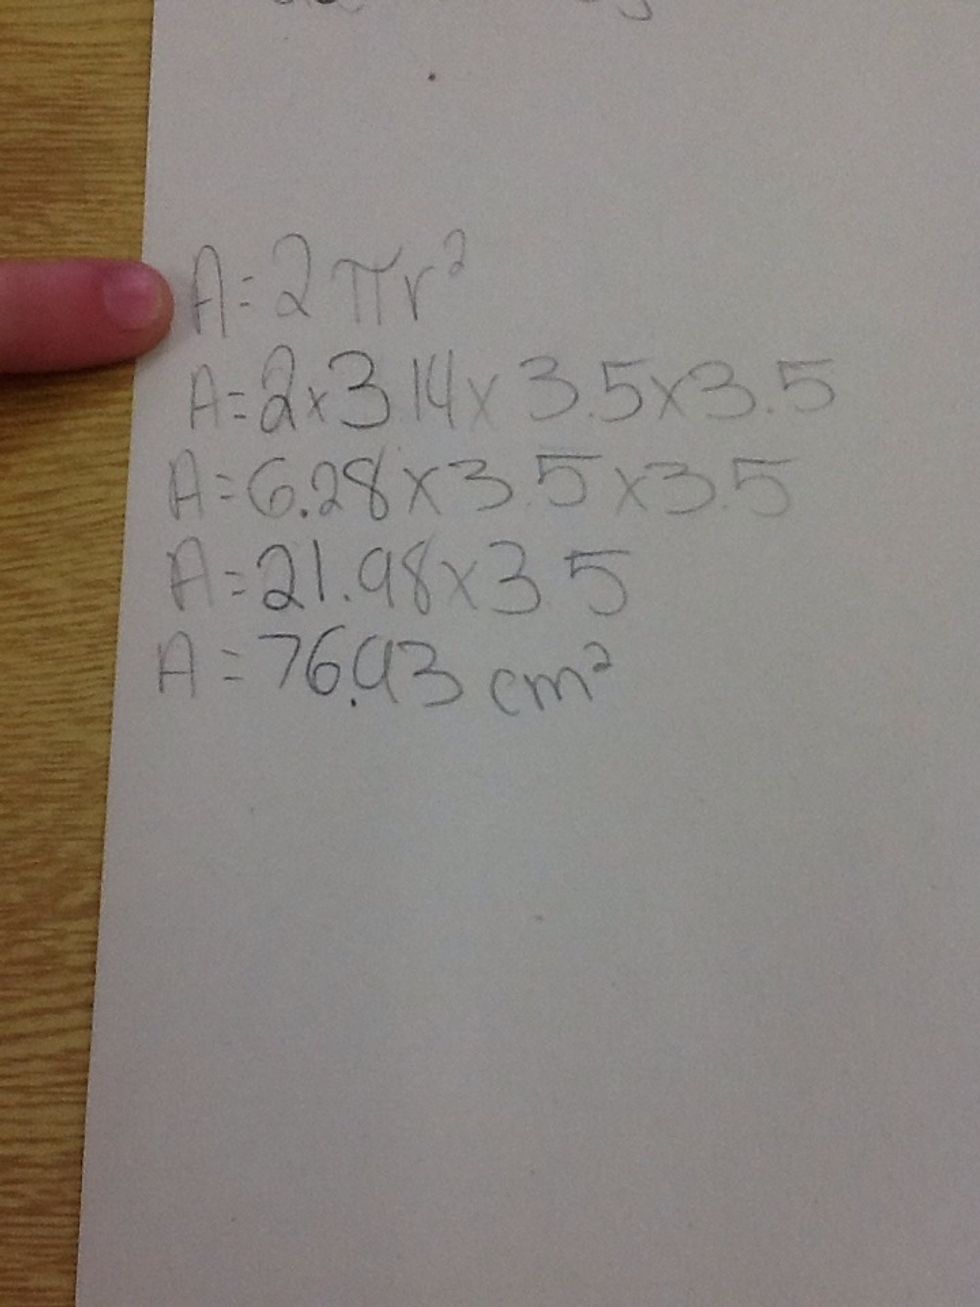 A=2πr²
A=2x3.14x3.5x3.5
A=6.28x3.5x3.5
A=21.98x3.5
A=76.93 cm²